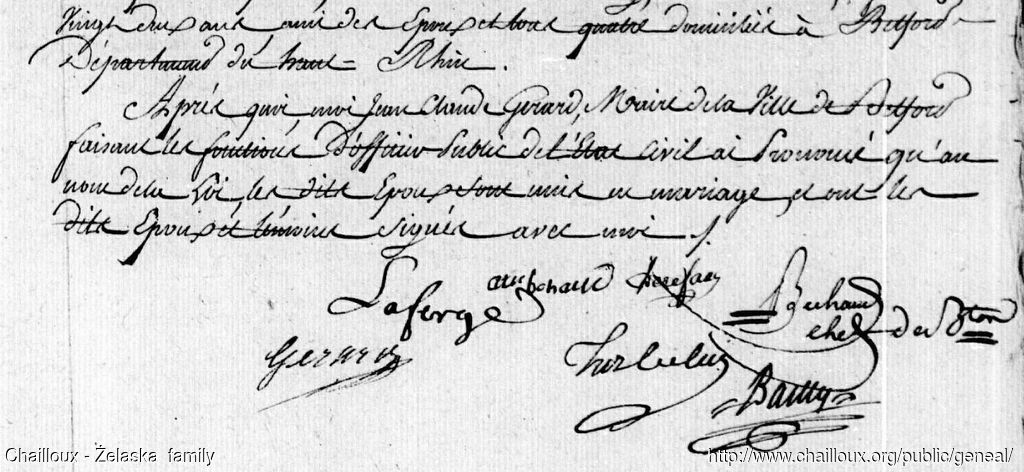 Vingt deux ans ami des Epoux et tous quatre domiciliés à Belford
Département du haut = Rhin.
Après quoi moi Jean Claude Gerard, Maire de la Ville de Belford
faisant les fonctions D'officier Public de l'Etat Civil ai Prononcé qu'au
nom de la Loi, les dits Epoux sont unis en mariage, et ont les
dits Epoux et témoins signés avec moi ./.
Laferge
Gerard
Bailly
Chailloux - Želaska family
http://www.chailloux.org/public/geneal/